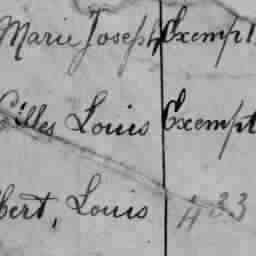 Marie Joseph Exempt
Gilles Louis Exempt
bert, Louis 433